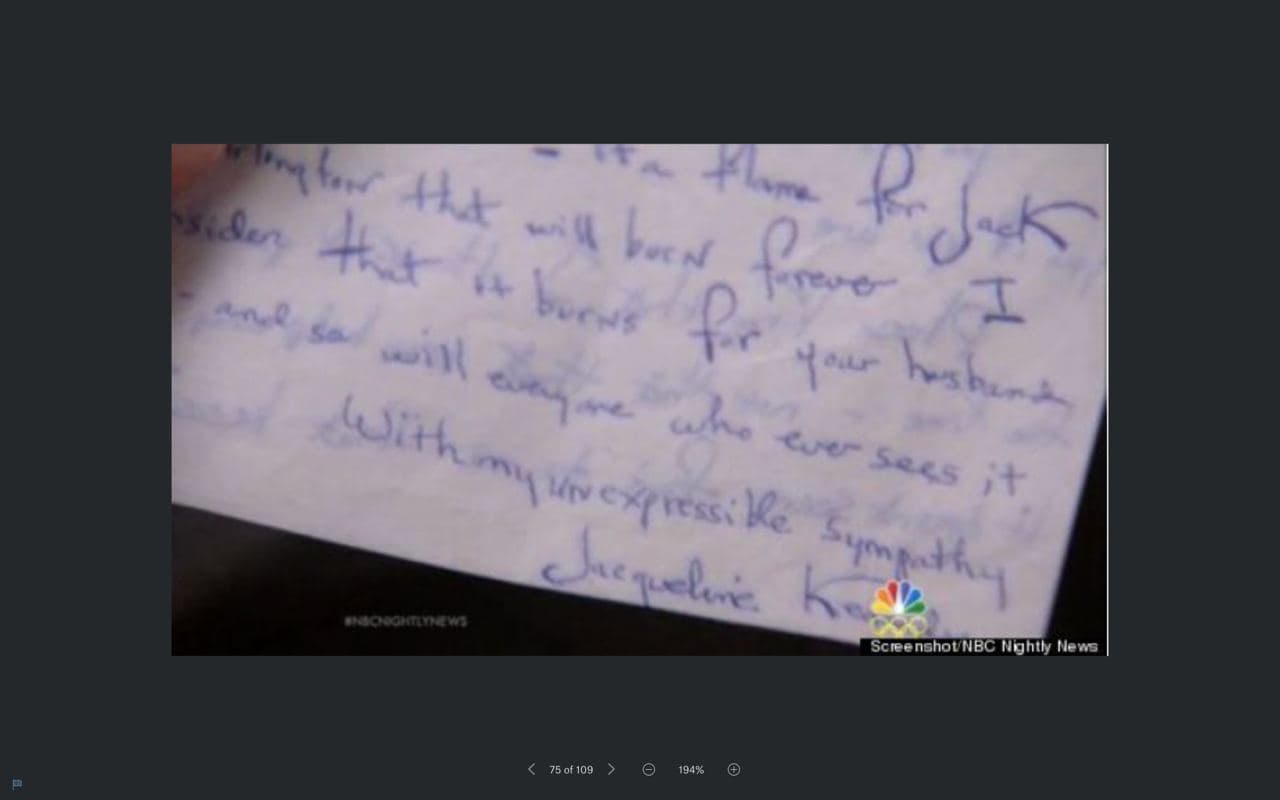 flame for Jack
that will burn forever I
that it burns for your husband
- and so will everyone who ever sees it
With my inexpressible sympathy
Jacqueline
#NBCNIGHTLYNEWS
Screenshot/NBC Nightly News
75 of 109 194%